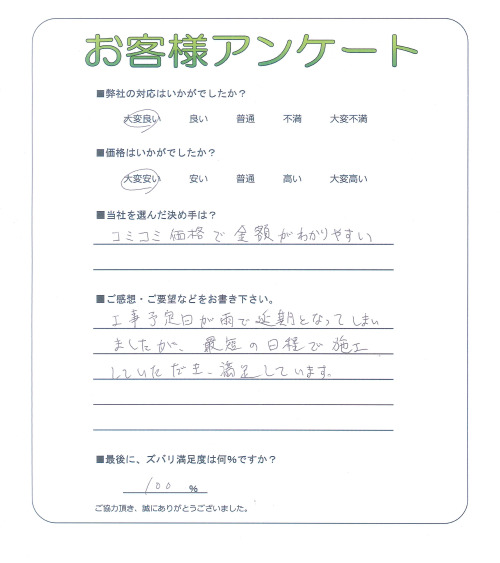 お客様アンケート
■弊社の対応はいかがでしたか？
大変良い 良い 普通 不満 大変不満
■価格はいかがでしたか？
大変安い 安い 普通 高い 大変高い
■当社を選んだ決め手は？
コミコミ価格で金額がわかりやすい
■ご感想・ご要望などをお書き下さい。
工事予定日が雨で延期となってしまい
ましたが、最短の日程で施工
していただき、満足しています。
■最後に、ズバリ満足度は何%ですか？
100 %
ご協力頂き、誠にありがとうございました。